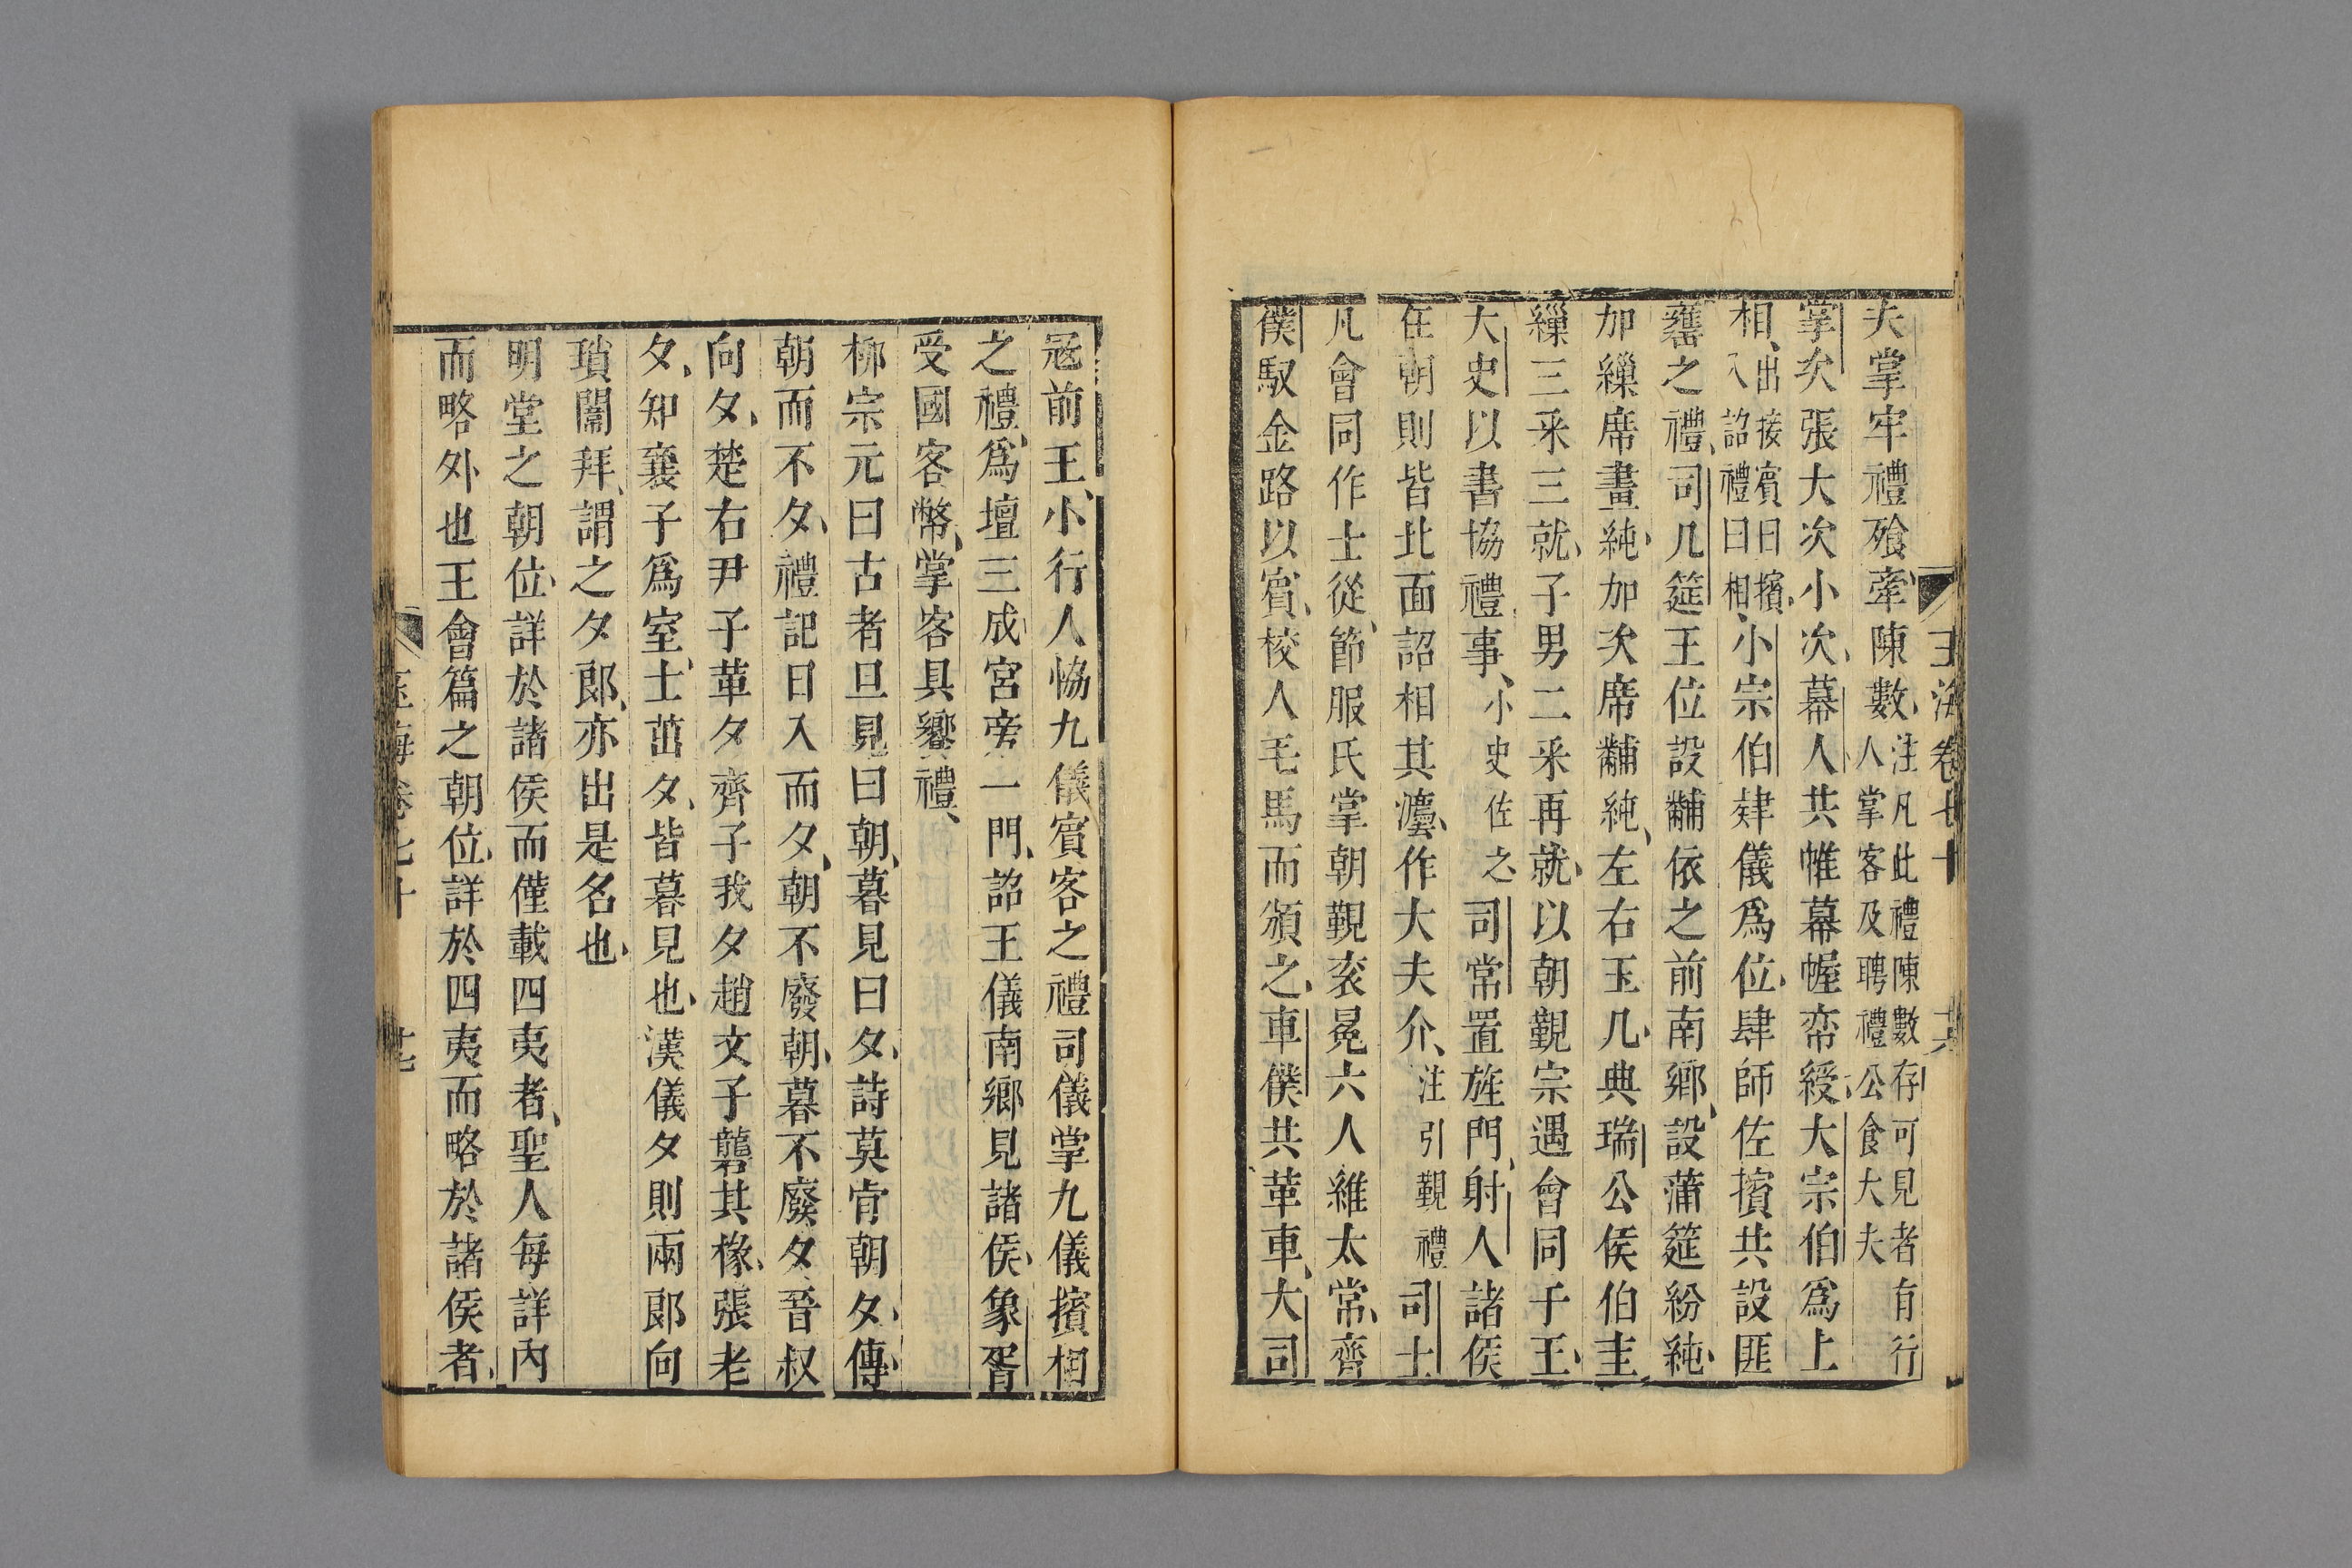 玉海卷七十 其
夫掌牢禮飱牽陳數注凡此禮陳數存可見者有行人掌客及聘禮公食大夫
掌次張大次小次幕人共帷幕幄帟綬大宗伯爲上
相出接賓曰擯入詔禮曰相小宗伯肄儀爲位肆師佐擯共設匪
罋之禮司几筵王位設黼依之前南鄉設蒲筵紛純
加繅席畫純加次席黼純左右玉几典瑞公侯伯圭
繅三采三就子男二采再就以朝覲宗遇會同于王
大史以書協禮事小史佐之司常置旌門射人諸侯
在朝則皆北面詔相其灋作大夫介注引覲禮司士
凡會同作士從節服氏掌朝覲衮冕六人維太常齊
僕馭金路以賓校人毛馬而頒之車僕共革車大司
冦前王小行人恊九儀賓客之禮司儀掌九儀擯相
之禮爲壇三成宮旁一門詔王儀南鄉見諸侯象胥
受國客幣掌客具饗禮
柳宗元曰古者旦見曰朝暮見曰夕詩莫肯朝夕傳
朝而不夕禮記日入而夕朝不廢朝暮不廢夕晉叔
向夕楚右尹子革夕齊子我夕趙文子礱其椽張老
夕知襄子爲室士茁夕皆暮見也漢儀夕則兩郞向
瑣闈拜謂之夕郞亦出是名也
明堂之朝位詳於諸侯而僅載四夷者聖人每詳內
而略外也王會篇之朝位詳於四夷而略於諸侯者
玉海卷七十 廿七